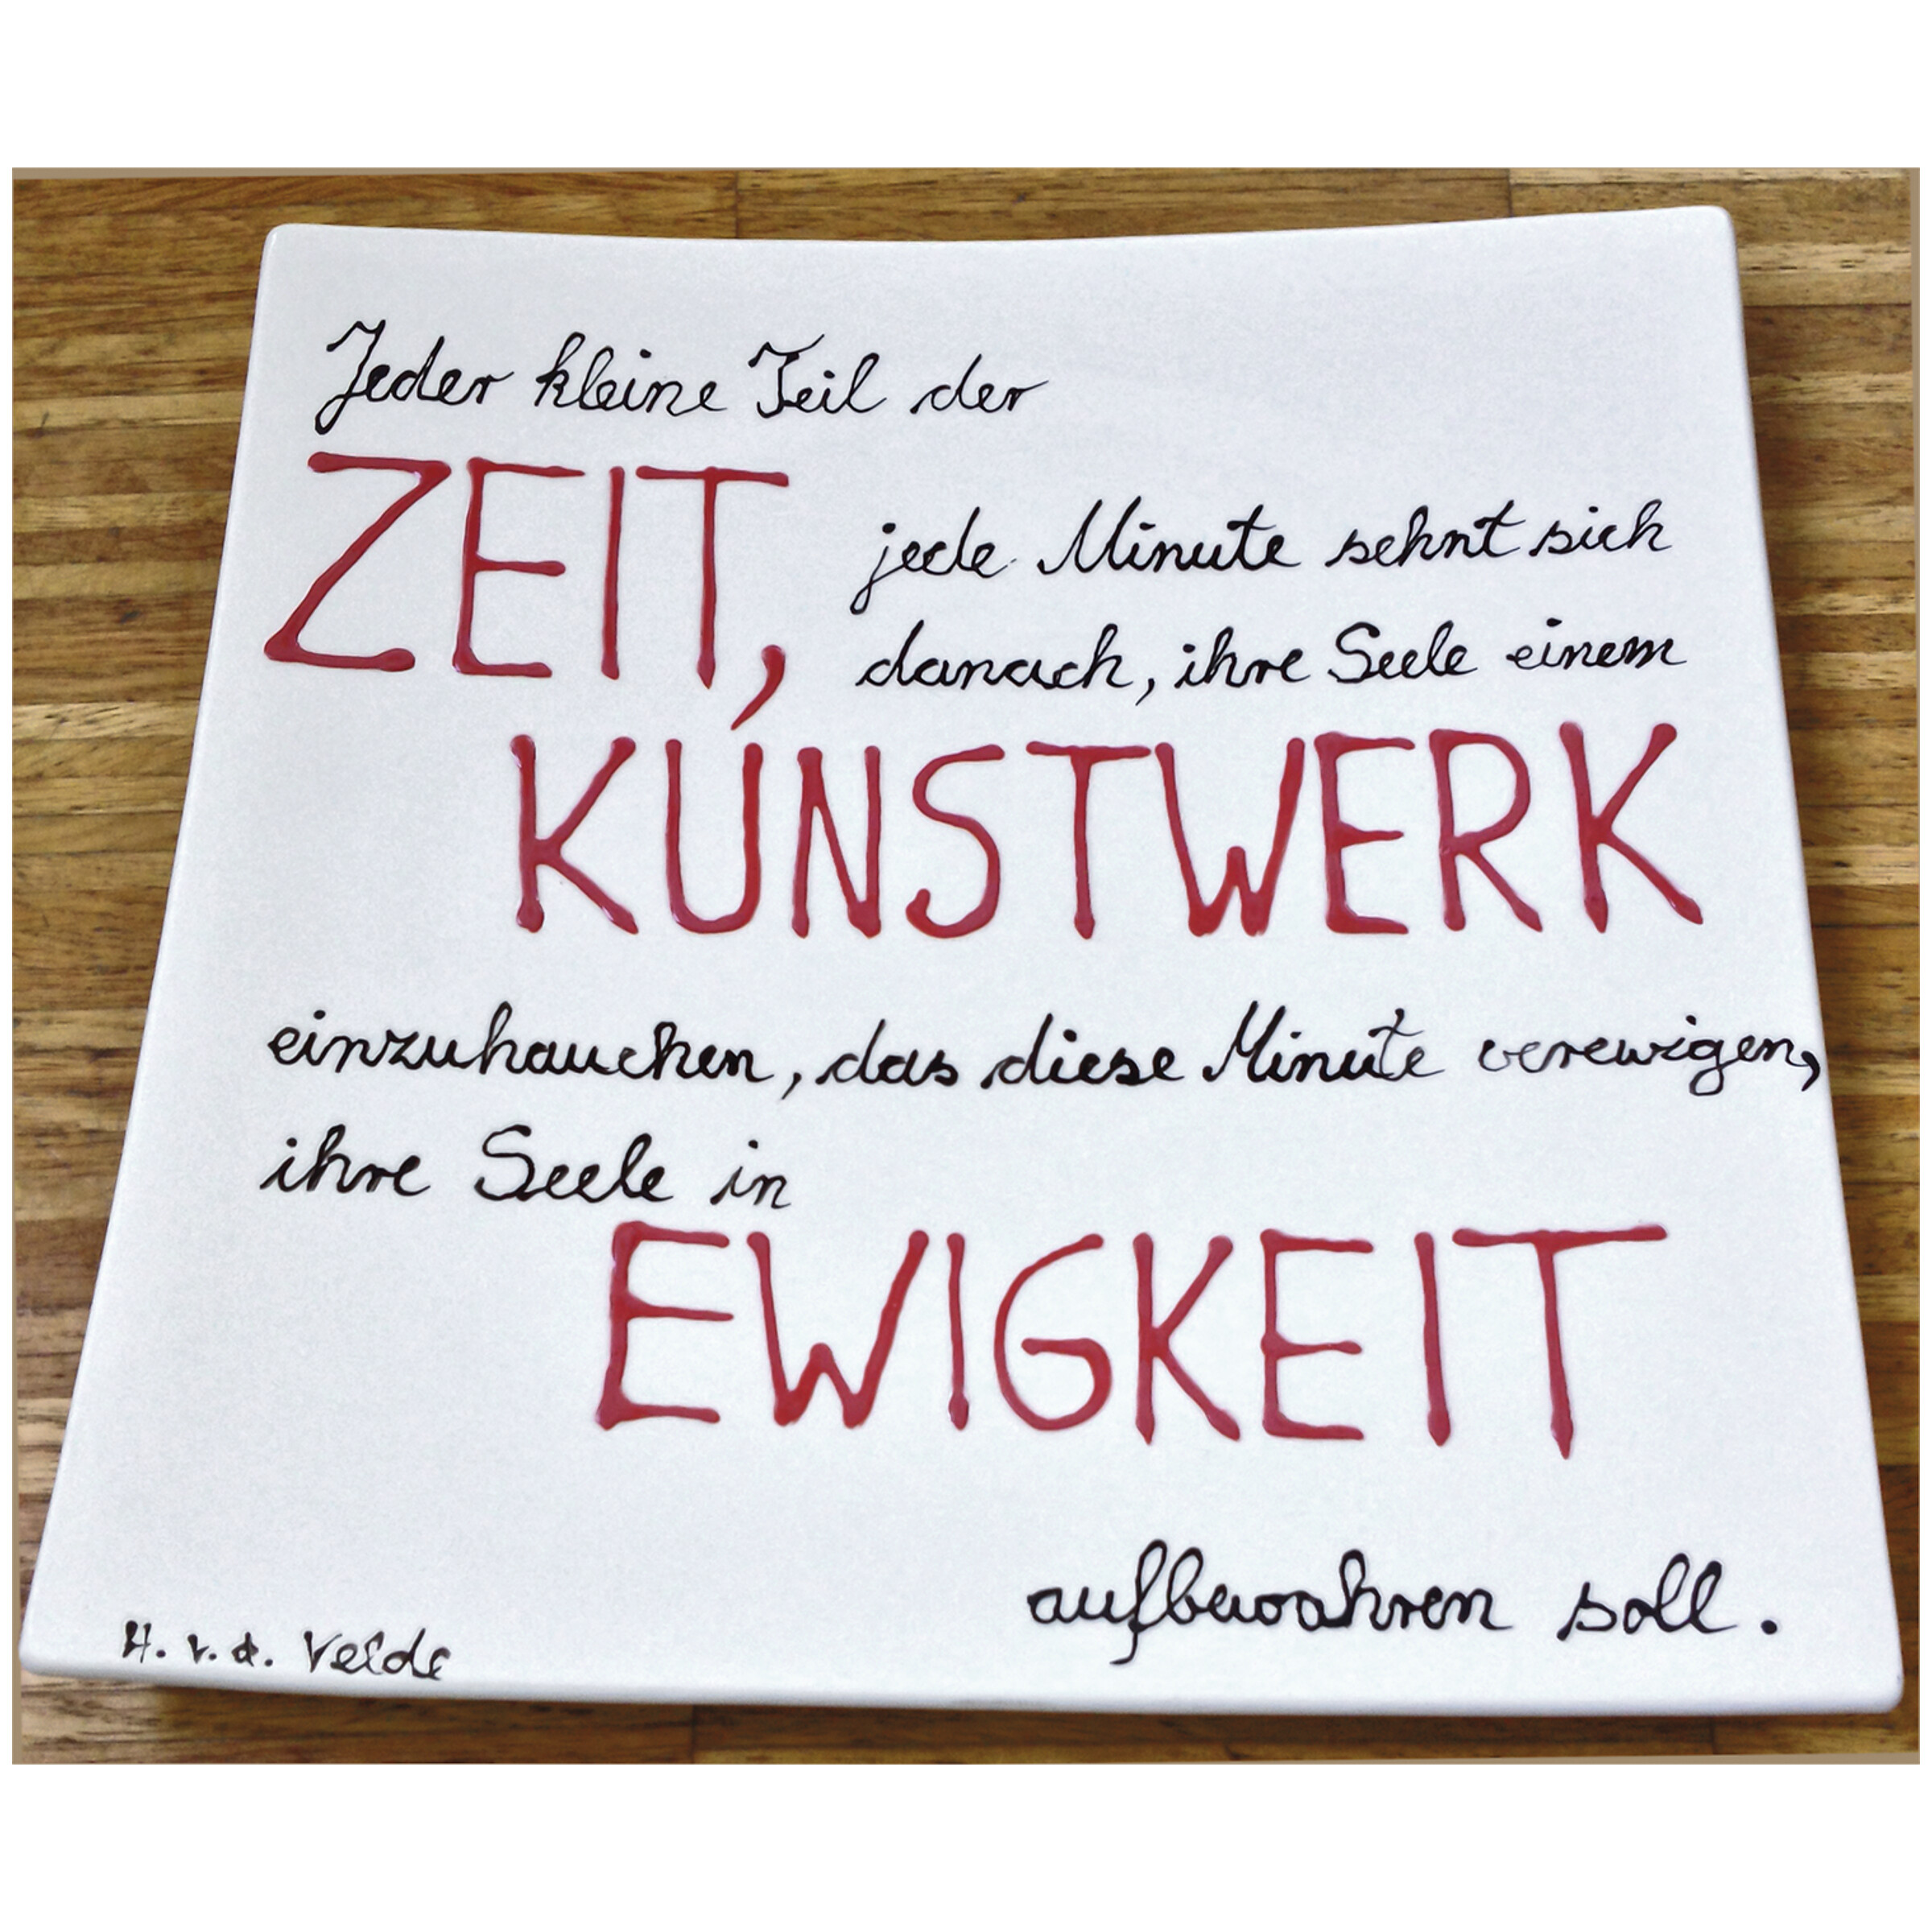 Jeder kleine Teil der
ZEIT,
jede Minute sehnt sich
danach, ihre Seele einem
KUNSTWERK
einzuhauchen, das diese Minute verewigen,
ihre Seele in
EWIGKEIT
aufbewahren soll.
H. v. d. Velde